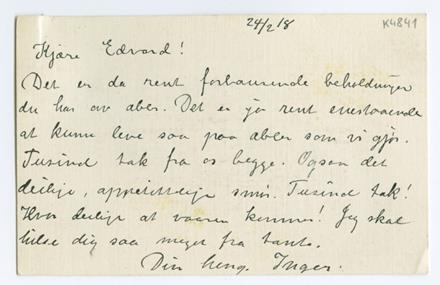 24/2 18
K4841
Kjære Edvard!
Det er da rent forbausende beholdninger
du har av æbler. Det er jo rent enestaaende
at kunne leve saa paa æbler som vi gjør.
Tusind tak fra os begge. Ogsaa det
deilige, appetittlige smør. Tusind tak!
Hvor deilig at vaaren kommer! Jeg skal
hilse dig saa meget fra tante.
Din heng. Inger.